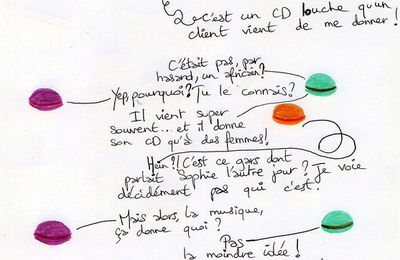 c'est un CD louche qu'un
client vient de me donner !
C'était pas, par
hasard, un africain ?
Yep, pourquoi ? Tu le connais ?
Il vient super
souvent... et il donne
son CD qu'à des femmes !
Hein ?! C'est ce gars dont
parlait Sophie l'autre jour ? Je voie
décidément pas qui c'est.
Mais alors, la musique,
ça donne quoi ?
Pas
la moindre idée !